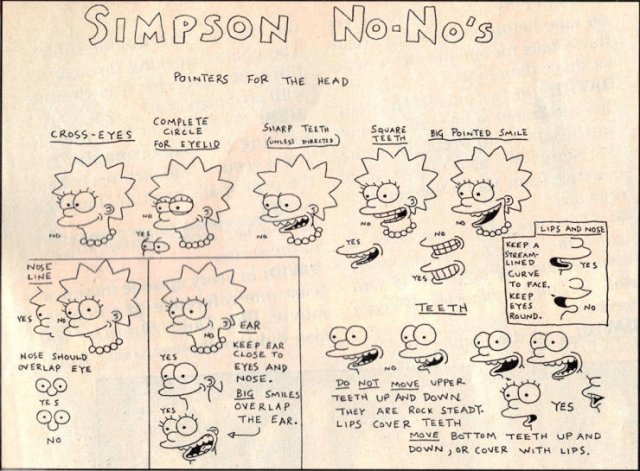 SIMPSON NO-NO'S
POINTERS FOR THE HEAD
CROSS-EYES
NO
COMPLETE
CIRCLE
FOR EYELID
NO
YES
SHARP TEETH
(UNLESS DIRECTED)
NO
SQUARE
TEETH
NO
YES
BIG POINTED SMILE
NO
YES
LIPS AND NOSE
KEEP A
STREAM-
LINED
CURVE
TO FACE.
KEEP
EYES
ROUND.
YES
NO
NOSE
LINE
YES
NO
NOSE SHOULD
OVERLAP EYE
YES
NO
NO
EAR
KEEP EAR
CLOSE TO
EYES AND
NOSE.
BIG SMILES
OVERLAP
THE EAR.
YES
YES
TEETH
NO
DO NOT MOVE UPPER
TEETH UP AND DOWN
THEY ARE ROCK STEADY.
LIPS COVER TEETH
YES
MOVE BOTTOM TEETH UP AND
DOWN, OR COVER WITH LIPS.